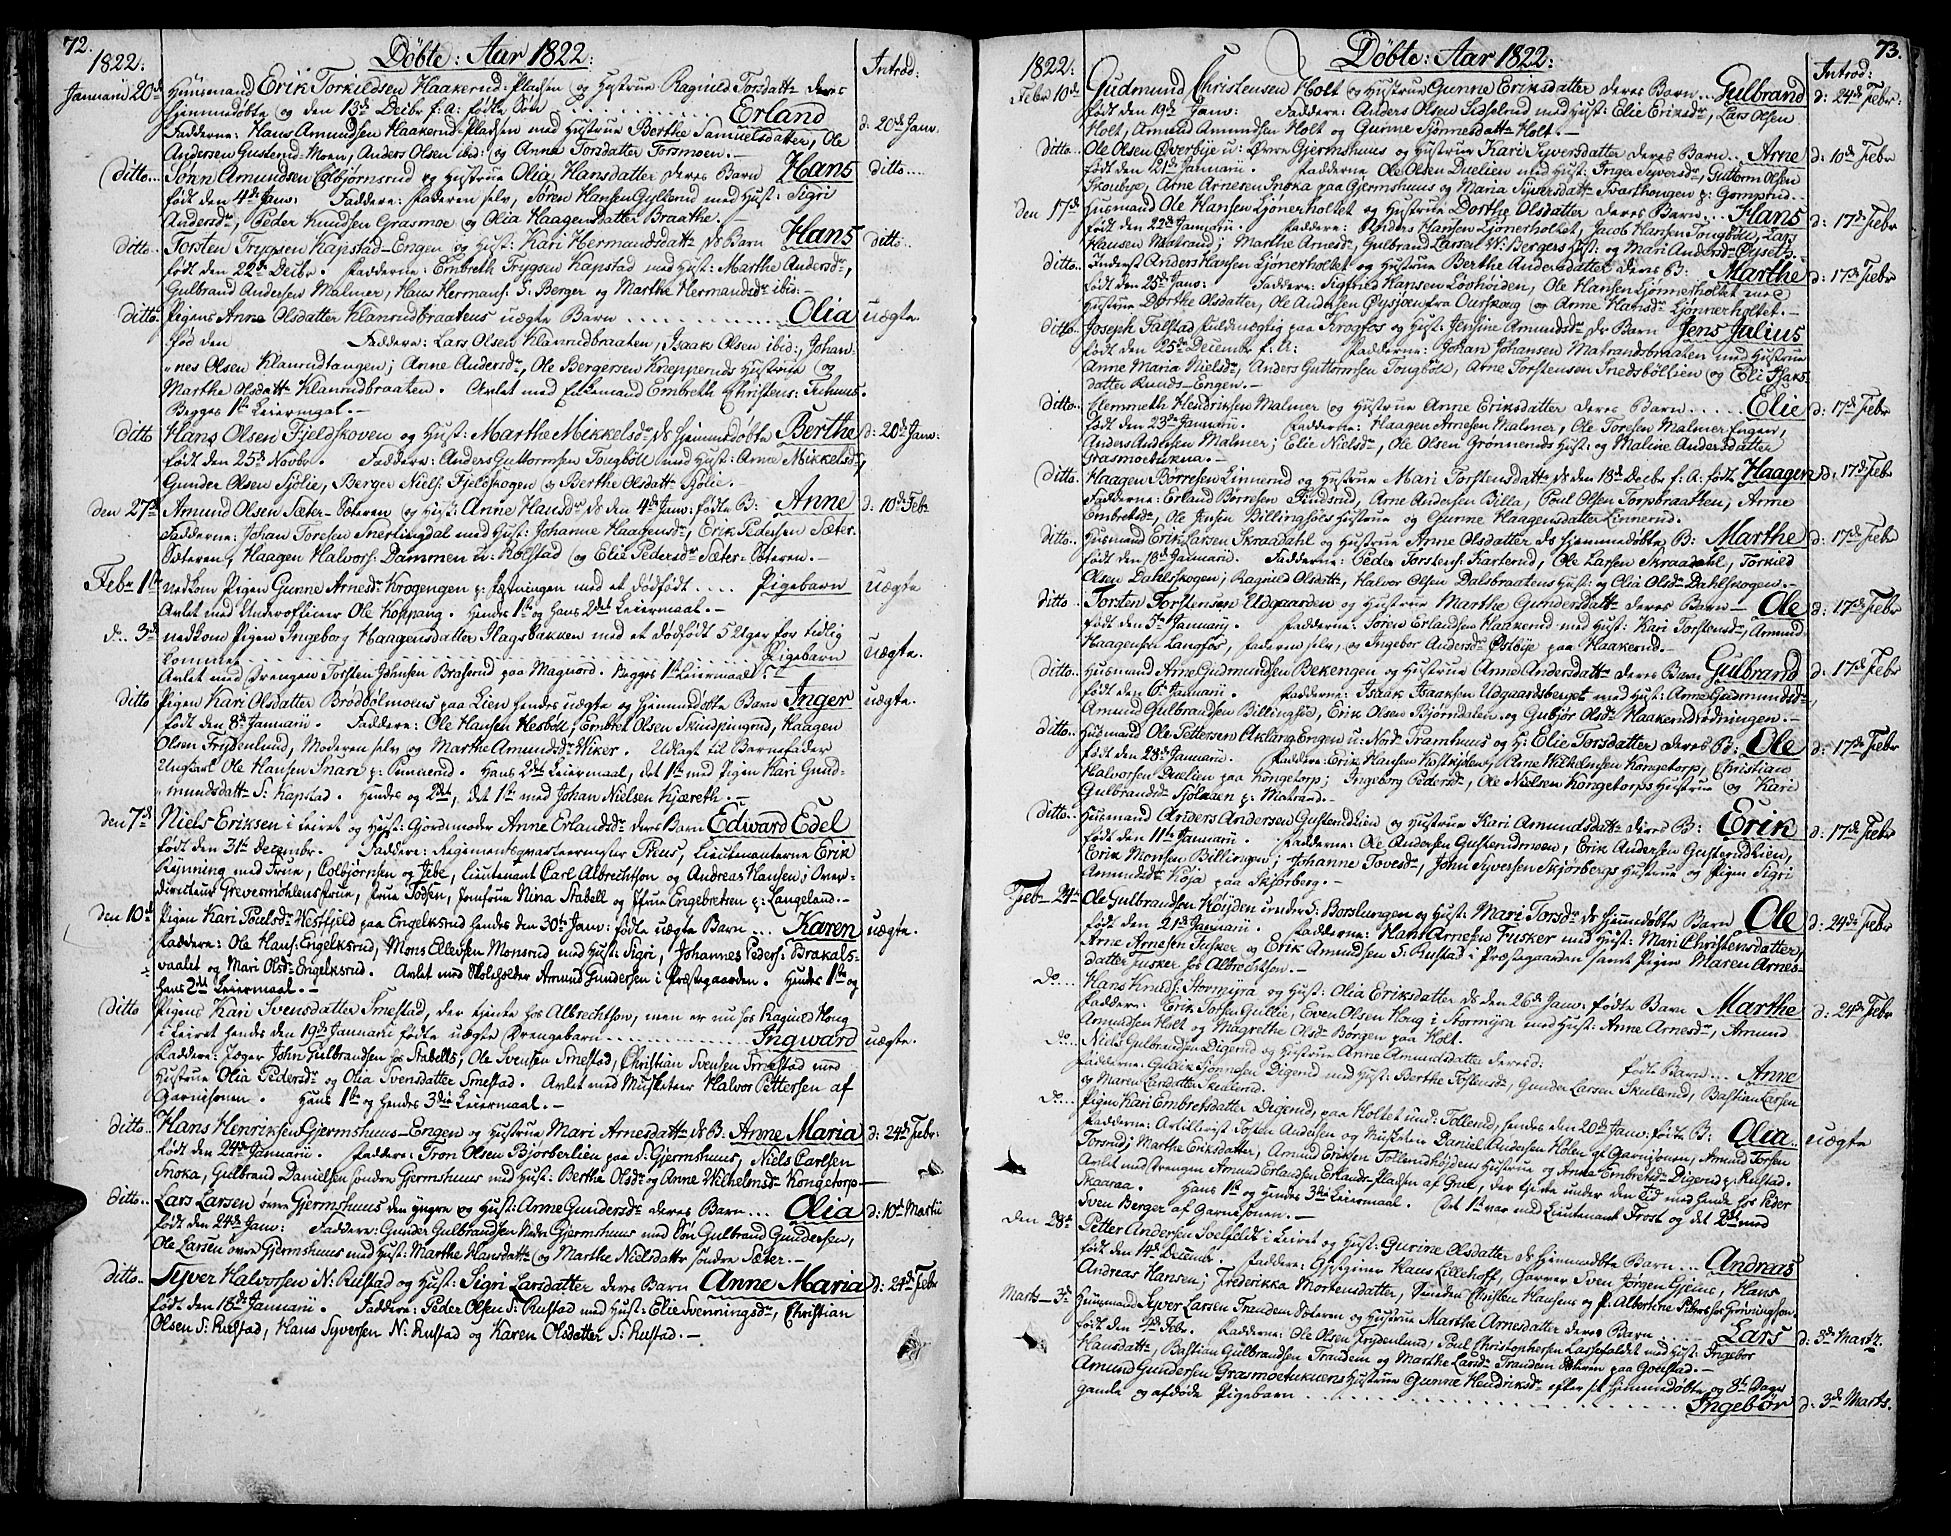 72.
1822.
Döbte: Aar 1822:
Introd:
Januarii 20de Huusmand Erik Torkildsen Haakerud-Pladsen og Hustrue Ragnild Torsdattr deres
hjemmedöbte og den 13de Decbr f: A: födte Sön ........ Erland d: 20de Janv:
Faddere: Hans Amundsen Haakerud-Pladsen med Hustrue Berthe Samuelsdatter, Ole
Andersen Gusterud-Moen, Anders Olsen ibid: og Anne Torsdatter Torsmoen.—
ditto... Sören Amundsen Esbjörnsrud og Hustrue Olia Hansdatter deres Barn Hans ditto....
födt den 4de Janv: Faddere: Faderen selv, Sören Hansen Gyllerud med Hust: Sigri
Andersdr, Peder Knudsen Grasmoe og Olia Haagensdatter Braathe.—
ditto.. Torsten Trygsen Kapstad-Engen og Hust: Kari Hermandsdattr Ds Barn Hans ditto..
födt den 22de Decbr. Fadderne: Embreth Trygsen Kapstad med Hust: Marthe Andersdr,
Gulbrand Andersen Malmer, Hans Hermans: S: Berger og Marthe Hermandsdr ibid:—
ditto Pigens Anne Olsdatter Klanrudbraatens uægte Barn ........ Olia uægte.
Fød den Faddere: Lars Olsen Klanrudbraaten, Isaak Olsen ibid:, Johan-
nes Olsen Klanrudtangen; Anne Andersdr, Ole Bergersen Knepperuds Hustrue og
Marthe Olsdattr Klanrudbraaten. Avlet med Enkemand Embreth Christens: Tuhuus.
Begges 1ste Leiermaal.—
ditto Hans Olsen Fjeldskoven og Hust: Marthe Mikkelsdr Ds hjemmedöbte Berthe d: 20de Janv:
födt den 25de Novbr. Faddere: Anders Guttormsen Tougböll med Hust: Anne Mikkelsdr,
Gunder Olsen Sjölie, Berger Niels: Fjeldskogen og Berthe Olsdattr Sjölie.—
den 27de Amund Olsen Sæter-Sæteren og Hust: Anne Hansdr Ds den 4de Janv: födte B: Anne d: 10de Febr
Fadderne: Johan Toresen Snertingdal med Hust: Johanne Haagensdr, Erik Pedersen Sæter-
Sæteren, Haagen Halvors: Dammen u: Rolstad og Elie Pedersdr Sæter-Sæteren.—
Febr 1ste nedkom Pigen Gunne Arnesdr Krogengen p: Fæstningen med et dödfödt .... Pigebarn uægte
Avlet med Underofficer Ole Koppang. Hendes 1ste og Hans 2det Leiermaal.—
d.. 3de nedkom Pigen Ingeborg Haagensdatter Slagsbakken med et dödfödt 5 Uger for tidlig
kommet ........ Pigebarn uægte.
Avlet med Drengen Torsten Johnsen Braserud paa Magnord. Begges 1ste Leiermaal.—
ditto Pigen Kari Olsdatter Brödbölmoens paa Lien hendes uægte og hjemmedöbte Barn Inger uægte.
födt den 8de Januarii. Faddere: Ole Hansen Hesböll, Embret Olsen Skindpingrud, Haagen
Olsen Frydenlund, Moderen selv og Marthe Amundsdr Wiker. Udlagt til Barnefader
Ungkarl Ole Hansen Snare p: Pinnerud. Hans 2det Leiermaal, det 1ste med Pigen Kari Gud-
mundsdattr S: Kapstad. Hendes og 2det, det 1ste med Johan Nielsen Kjæreth.—
den 7de Niels Eriksen i Leiret og Hust: Gjordemoder Anne Erlandsdr deres Barn Edward Edel
födt den 31te Decembr. Faddere: Regimentsqvarteermester Thus, Lieutenanterne Erik
Rynning med Frue, Colbjörnsen og Jebe, Lieutenant Carl Albrechtson og Andreas Hansen; Over-
directeur Grevesmöhlens Frue, Frue Todsen, Jomfrue Nina Stabell og Jfrue Engebretsen p: Langeland.—
den 10de Pigen Kari Poulsdr Westfjeld paa Engelksrud hendes den 30te Janv: födte uægte Barn ... Karen uægte.
Faddere: Ole Hans: Engelksrud, Mons Ellevsen Monsrud med Hust: Sigri, Johannes Peders: Brakals-
vaalet og Mari Olsdr Engelksrud. Avlet med Skoleholder Amund Gundersen i Præstegaarden. Hendes 1ste og
Hans 2det Leiermaal.—
ditto Pigens Kari Svensdatter Smestad, der tjente hos Albrechtson, men er nu hos Ragnild Houg
i Leiret hendes den 19de Januarii födte uægte Drengebarn ........ Ingward uægte.
Faddere: Jæger John Gulbrandsen hos Stabells, Ole Svensen Smestad, Christian Svensen Smestad med
Hustrue Olia Pedersdr og Olia Svensdatter Smestad. Avlet med Musketeer Halvor Pettersen af
Garnisonen. Hans 1ste og hendes 3die Leiermaal.—
ditto.. Hans Henriksen Gjermshuus-Engen og Hustrue Mari Arnesdattr Ds B: Anne Maria d: 24de Febr:
födt den 24de Januarii. Faddere: Tron Olsen Björberlien paa S: Gjermshuus, Niels Carlsen
Snoka, Gulbrand Danielsen söndre Gjermshuus med Hust: Berthe Olsdr og Anne Wilhelmsdr Kongetorp—
ditto.. Lars Larsen övre Gjermshuus den yngre og Hust: Anne Gundersdr deres Barn ... Olia d: 10de Martii
födt den 24de Janv: Faddere: Gunder Gulbrandsen Nedre Gjermshuus med Sön Gulbrand Gundersen,
Ole Larsen övre Gjermshuus med Hust: Marthe Hansdattr og Marthe Nielsdattr söndre Sæter.—
ditto.. Syver Halvorsen N: Rustad og Hust: Sigri Larsdatter deres Barn Anne Maria d: 24de Febr
födt den 18de Januarii. Faddere: Peder Olsen S: Rustad med Hust: Elie Svenningsdr, Christian
Olsen S: Rustad, Hans Syversen N: Rustad og Karen Olsdatter S: Rustad.—
73.
1822:
Döbte: Aar 1822:
Introd:
Febr 10de Gudmund Christensen Holt og Hustrue Gunne Eriksdatter deres Barn .. Gulbrand d: 24de Febr:
födt den 19de Janv: Faddere: Anders Olsen Sidselrud med Hust: Elie Eriksdr, Lars Olsen
Holt, Amund Amundsen Holt og Gunne Sjönnesdattr Holt.—
ditto... Ole Olsen Överbye u: Övre Gjermshuus og Hustrue Kari Syversdatter deres Barn .. Arne d: 10de Febr
födt den 21de Januarii. Faddere: Ole Olsen Duelien med Hust: Inger Syversdr, Guttorm Olsen
Skoubye, Arne Arnesen Snoka paa Gjermshuus og Maria Syversdattr Svarthougen p: Gomsrud.—
den 17de Husmand Ole Hansen Ljönerholtet og Hustrue Dorthe Olsdatter deres Barn .... Hans d: 17de Febr
födt den 22de Januarii. Faddere: Anders Hansen Ljönerholtet, Jacob Hansen Tougböll, Lars
Hansen Matrand; Marthe Arnesdr, Gulbrand Larsen W: Bergers Hust: og Mari Andersdr Öyset.—
ditto. Inderst Anders Hansen Ljönerholtet og Hustrue Berthe Andersdatter deres B: Marthe d: 17de Febr
födt den 25de Janv: Faddere: Sigfrid Hansen Lövhöiden, Ole Hansen Ljönnerholtet med
Hustrue Dorthe Olsdatter, Ole Andersen Öysjöen fra Ourskoug og Anne Hansdr Ljönnerholtet.—
ditto. Joseph Falstad Fuldmægtig paa Krogfos og Hust: Jensine Amundsdr Ds Barn Jens Julius
födt den 25de Decembr f: A: Fadderne: Johan Johansen Matrandsbraaten med Hustrue
Anne Maria Nielsdr, Anders Guttormsen Tougböll, Arne Torstensen Snedsböllien og Eli Isaks-
datter Runds-Engen.—
ditto.. Clemmeth Hendriksen Malmer og Hustrue Anne Eriksdatter deres Barn .... Elie d: 17de Febr
födt den 23de Januarii. Fadderne: Haagen Arnesen Malmer, Ole Toresen Malmer Engen,
Anders Andersen Malmer; Elie Nielsdr, Ole Olsen Grönneruds Hust: og Maline Andersdatter
Grasmoetukna.—
ditto. Haagen Börresen Linnerud og Hustrue Mari Torstensdattr Ds den 18de Decbr f: A: födt Haagen d: 17de Febr
Fadderne: Erland Börresen Findsrud, Arne Andersen Billa, Poul Olsen Torpbraatten, Arne
Embretsdr, Ole Jensen Billingsöes Hustrue og Gunne Haagensdatter Linnerud.—
ditto.. Husmand Erik Larsen Skraadahl og Hustrue Anne Olsdatter Ds hjemmedöbte B: Marthe d: 17de Febr
födt den 18de Januarii. Fadderne: Peder Torstens: Karterud, Ole Larsen Skraadahl, Torkild
Olsen Dahlskogen; Ragnild Olsdattr, Halvor Olsen Dalsbraatens Hust: og Olia Olsdr Dahlskogen.—
ditto.. Torsten Torstensen Udgaarden og Hustrue Marthe Gundersdattr deres Barn— Ole d: 17de Febr
födt den 5te Januarij. Fadderne: Toren Erlandsen Haakerud med Hust: Kari Torstensdr, Amund
Haagensen Langfos, Faderen selv, og Ingebor Andersdr Östbye paa Haakerud.—
ditto. Husmand Arne Gudmundsen Bekengen og Hustrue Anne Andersdatter deres Barn Gulbrand d: 17de Febr
födt den 6te Januarii. Fadderne: Isaak Isaaksen Udgaardsberget med Hust: Anne Gudmundsdr,
Amund Gulbrandsen Billingsöe, Erik Olsen Björndalen og Gubjör Olsdr Haakerudrydningen.—
ditto.. Husmand Ole Pettersen Aklang Engen u: Nordr Tramhuus og H: Elie Torsdatter deres B: Ole d: 17de Febr
födt den 28de Januarii. Faddere: Erik Hansen Kostkjölen, Arne Wilhelmsen Kongetorp, Christian
Halvorsen Duelien paa Kongetorp; Ingeborg Pedersdr, Ole Nielsen Kongetorps Hustrue og Kari
Gulbrandsdr Sjölien p: Matrand.—
ditto.. Husmand Anders Andersen Gusterudlien og Hustrue Kari Amundsdattr deres B: Erik d: 17de Febr
födt den 11te Januarii. Fadderne: Ole Andersen Gusterudmoen, Erik Andersen Gusterudlien,
Erik Monsen Billingen; Johanne Tovesdr, John Syversen Skjörbergs Hustrue og Pigen Sigri
Amundsdr Köja paa Skjörberg.—
Febr 24de Ole Gulbrandsen Höijden under S: Borslungen og Hust: Mari Torsdr Ds hjemmedöbte Barn Ole d: 24de Febr
födt den 21de Januarii. Fadderne: Hans Arnesen Fusker med Hust: Mari Christensdatter,
Arne Arnesen Fusker og Erik Amundsen S: Rustad i Præstegaarden samt Pigen Maren Arnes-
datter Fusker hos Albrechtson.—
do... Hans Knuds: Stormyra og Hust: Olia Eriksdatter Ds den 26de Janv: födte Barn Marthe d: 24de Febr
Faddere: Erik Torsen Gullie, Even Olsen Houg i Stormyra med Hust: Anne Arnesdr, Amund
Amundsen Holt og Magrethe Olsdr Börgen paa Holt.
do.. Niels Gulbrandsen Digerud og Hustrue Anne Amundsdatter deres d: födte Barn... Anne
Fadderne: Gudik Sjönnesen Digerud med Hust: Berthe Torstensdr, Gunder Larsen Skullerud, Bastian Larsen
og Maren Larsdatter Skullerud.
do... Pigen Kari Embretsdatter Digerud, paa Holtet und: Tollerud, hendes den 20de Janv: födte B: Olia uægte
Faddere: Artillerist Torsten Andersen og Musketeer Daniel Andersen Holen af Garnisonen, Amund Torsen
Torsrud; Marthe Eriksdatter, Amund Eriksen Tollerudhöjdens Hustrue og Anne Embretsdr Digerud p: Rustad.
Avlet med Drengen Amund Erlandsen Erlands-Pladsen af Grue, der tjente under den Tid med hende hos Peder
Skaaraa. Hans 1ste og Hendes 3die Leiermaal. Det 1ste var med Lieutenant Frost og det 2det med
Sven Berger af Garnisonen.—
den 28de Petter Andersen Svelfeldt i Leiret og Hust: Gurine Olsdatter Ds hjemmedöbte Barn... Andreas
födt den 14de Decembr. Faddere: Giestgiver Hans Lillehoff, Garver Sven Jörgen Gjeiue, Hans
Andreas Hansen; Frederikka Mortensdatter, Smeden Christen Hansens og J: Albertine
Marts— 3de Huusmand Syver Larsen Traudem Sæteren og Hustrue Marthe Arnesdatter deres Barn.... Lars d: 3de Marts.
födt den 4de Febr. Fadderne: Ole Olsen Frydenlund, Poul Christophersen Lassefaldet med Hust: Ingebor
Hansdattr, Bastian Gulbrandsen Traudem og Marthe Larsdr Traudem Sæteren paa Goustad.—
Amund Gundersen Grasmoetukuens Hustrue Gunne Hendriksdr efter sit hjemmedöbte og 8te Dages
gamle og afdöde Pigebarn ........ Ingebör d: 3de Marts.